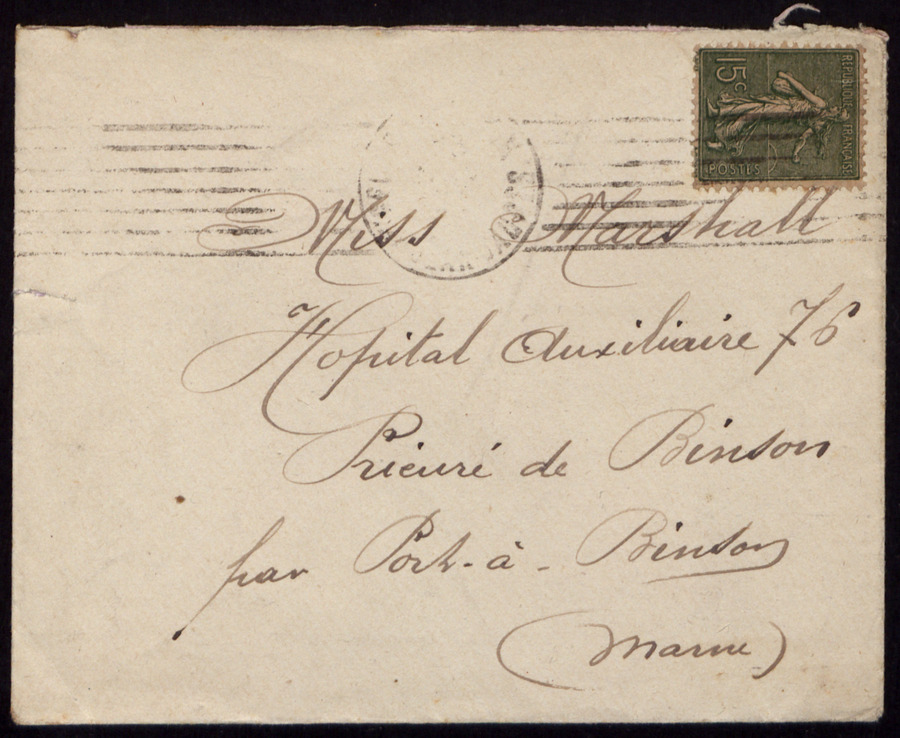 RÉPUBLIQUE FRANÇAISE
15c
POSTES
Miss Marshall
Hopital Auxiliaire 76
Prieuré de Binson
par Port-à-Binson
(Marne)